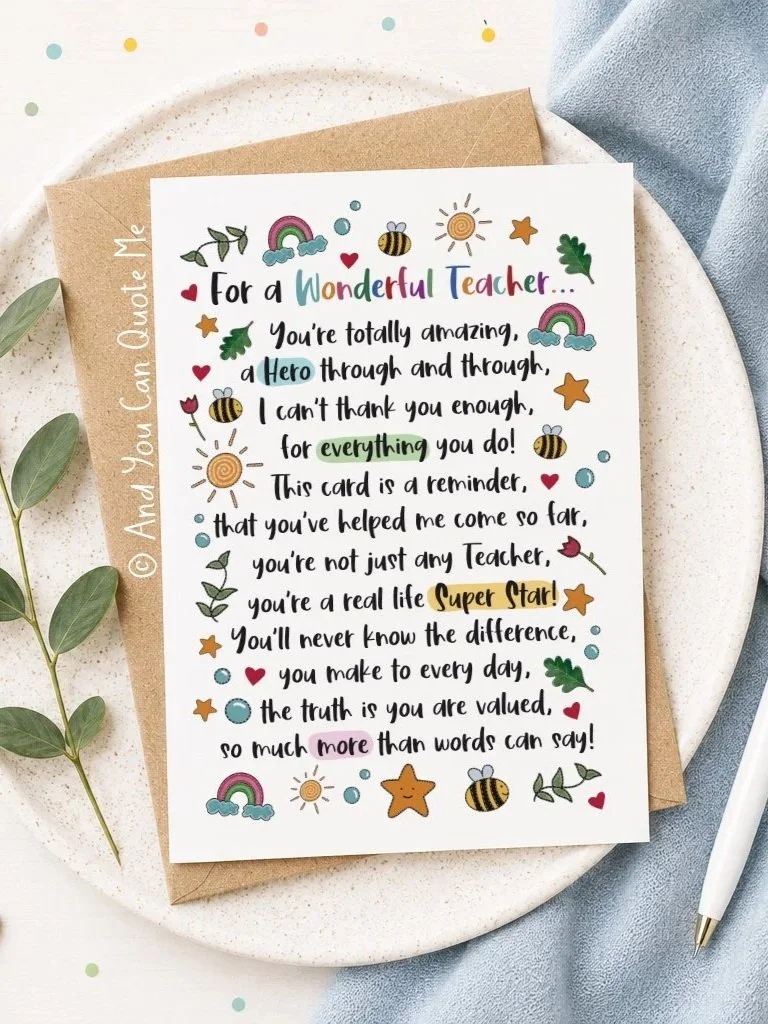 For a Wonderful Teacher...
You're totally amazing,
a Hero through and through,
I can't thank you enough,
for everything you do!
This card is a reminder,
that you've helped me come so far,
you're not just any Teacher,
you're a real life Super Star!
You'll never know the difference,
you make to every day,
the truth is you are valued,
so much more than words can say!
© And You Can Quote Me